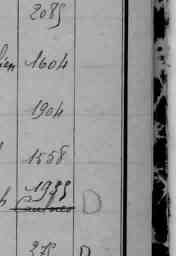 2085
lien 1604
1904
1558
1935
D
375 D